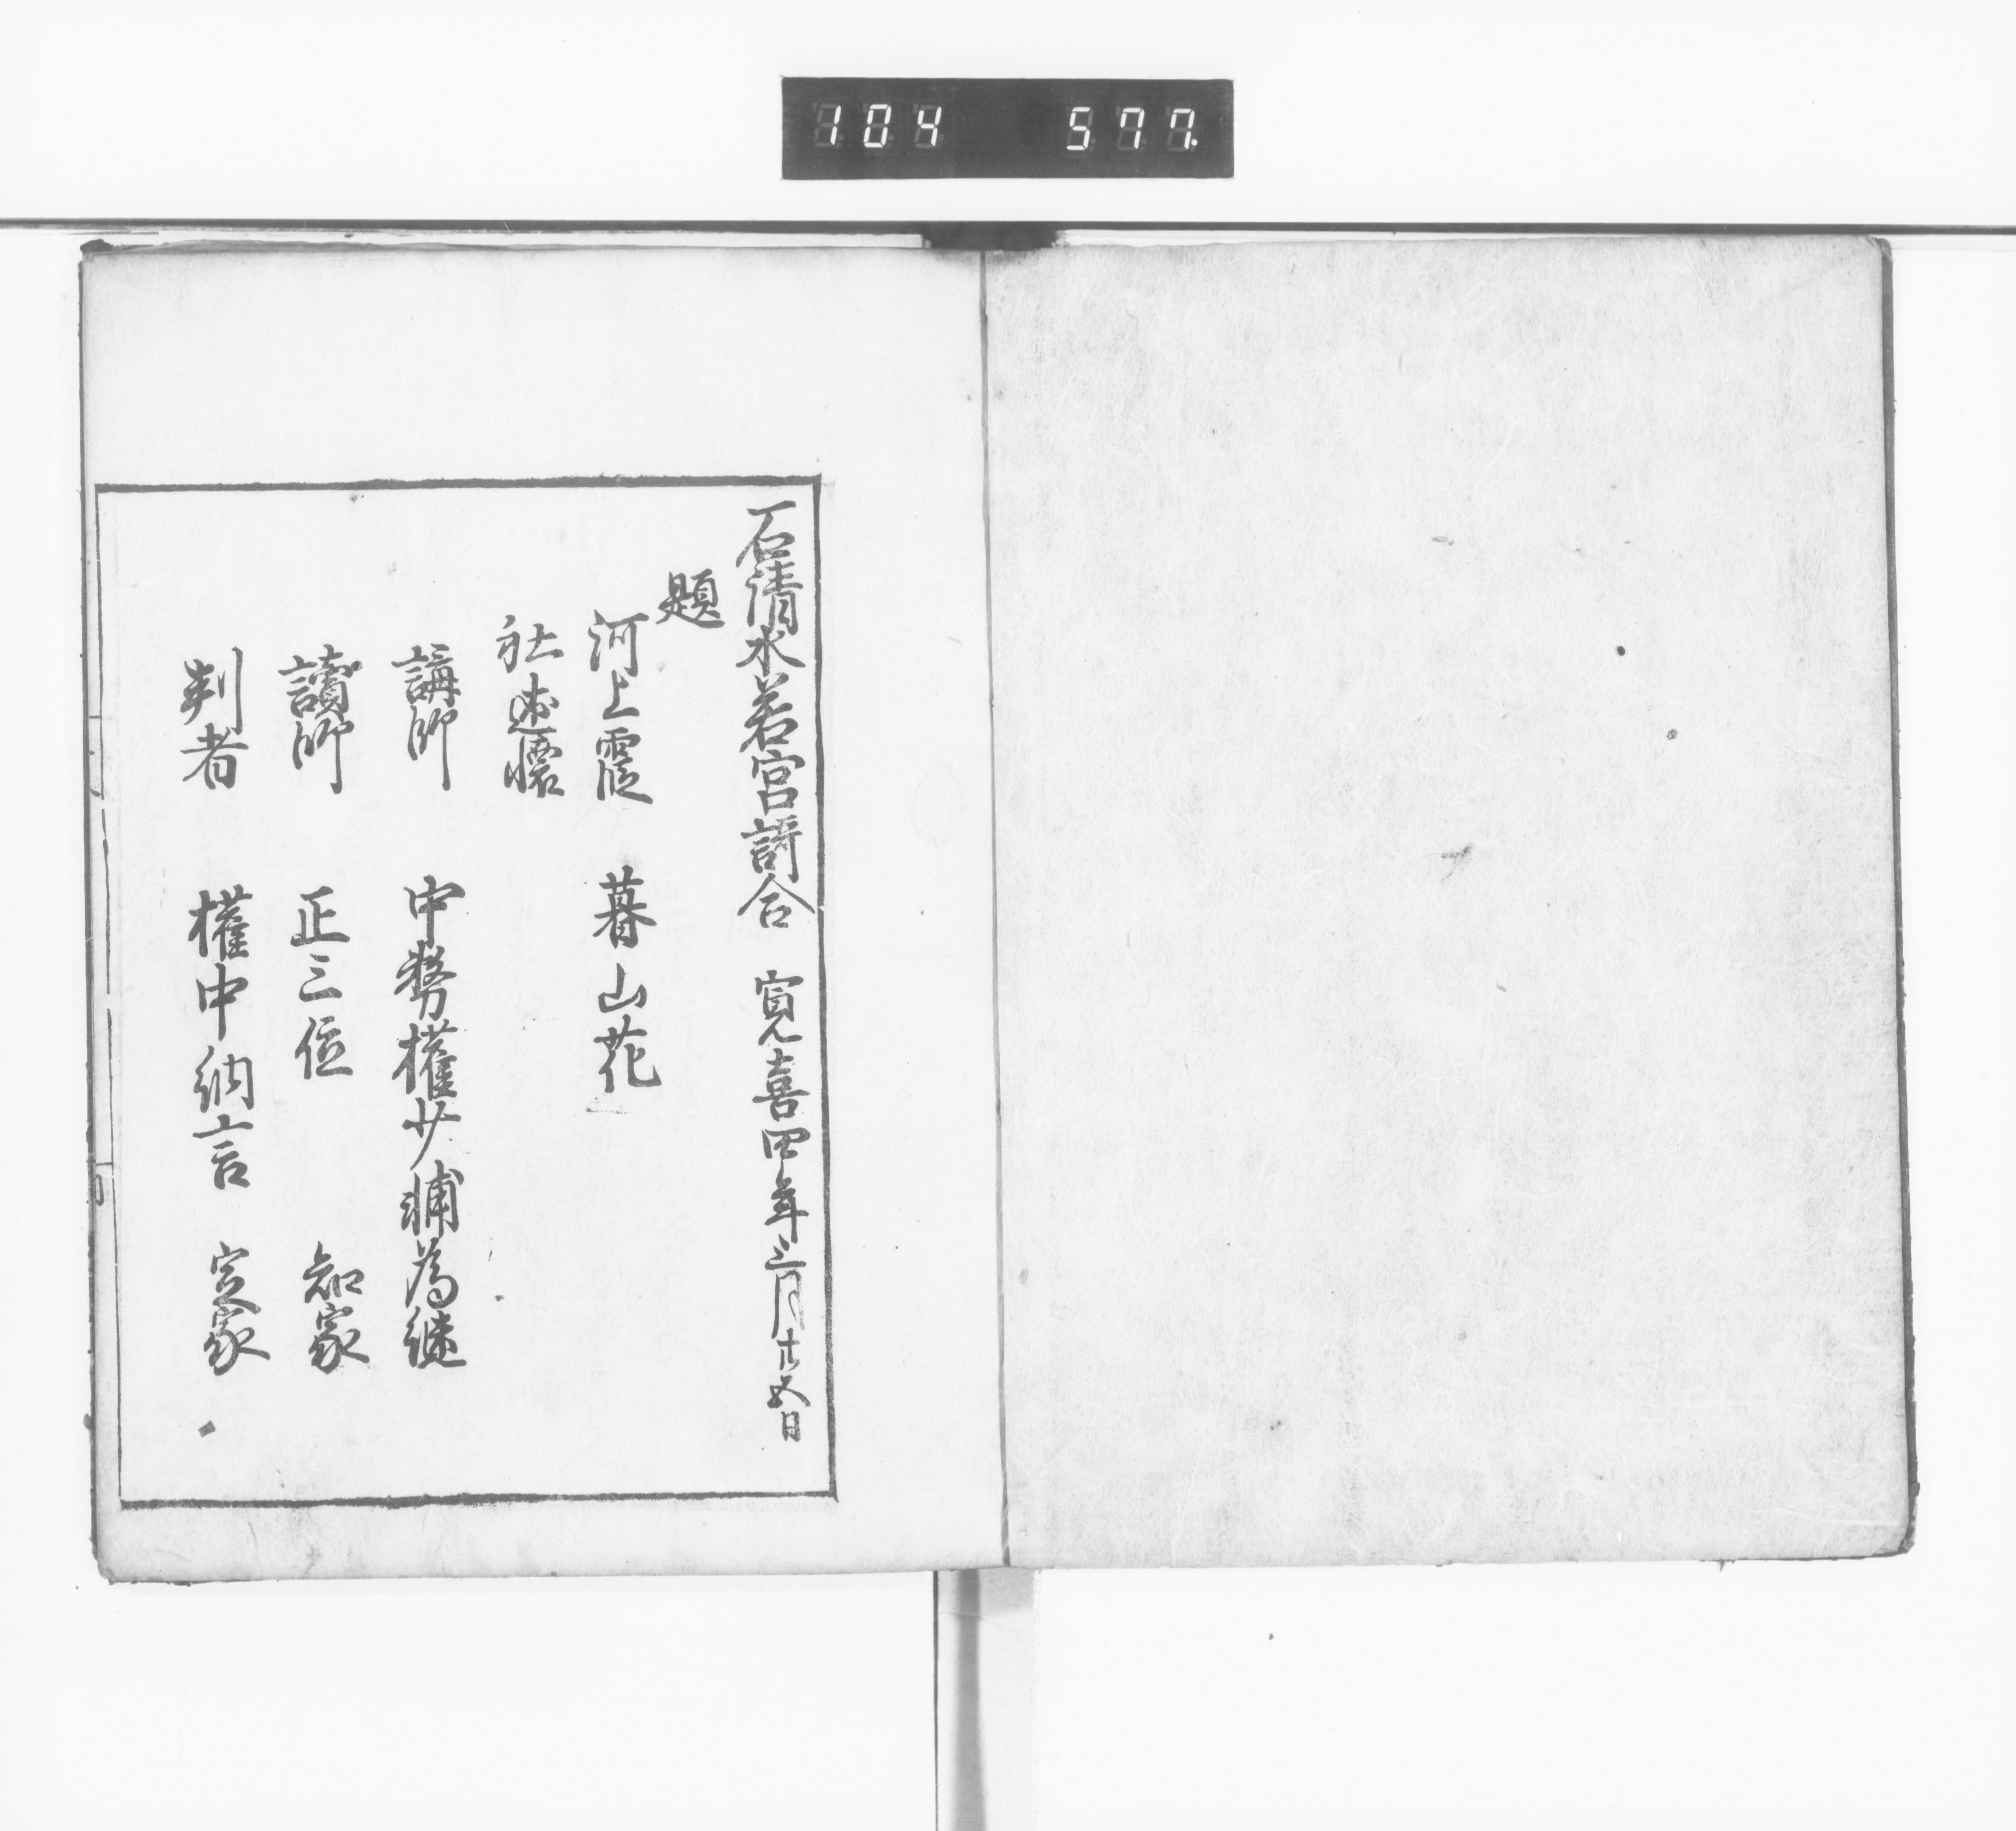 104 577.
石清水若宮謌合 寛喜四年三月廿五日
題
河上霞 暮山花
社述懷
講師 中務權少輔為継
讀師 正三位 知家
判者 權中納言 定家